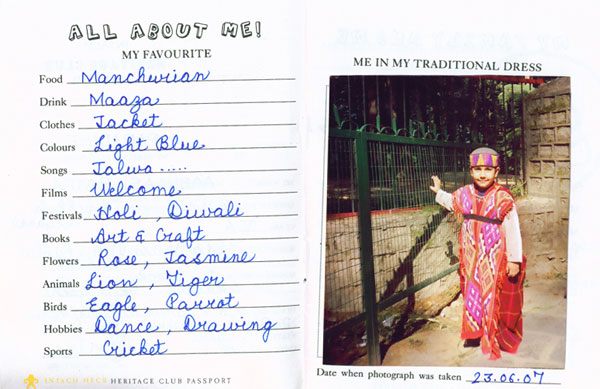 ALL ABOUT ME!
MY FAVOURITE
Food Manchurian
Drink Maaza
Clothes Jacket
Colours Light Blue
Songs Jalwa.....
Films Welcome
Festivals Holi, Diwali
Books Art & Craft
Flowers Rose, Jasmine
Animals Lion, Tiger
Birds Eagle, Parrot
Hobbies Dance, Drawing
Sports Cricket
INTACH HECS HERITAGE CLUB PASSPORT
ME IN MY TRADITIONAL DRESS
Date when photograph was taken 23.06.07